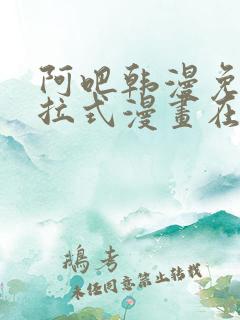 阿吧韩漫免
拉式漫畫在
鵝考
未经同意禁止转载